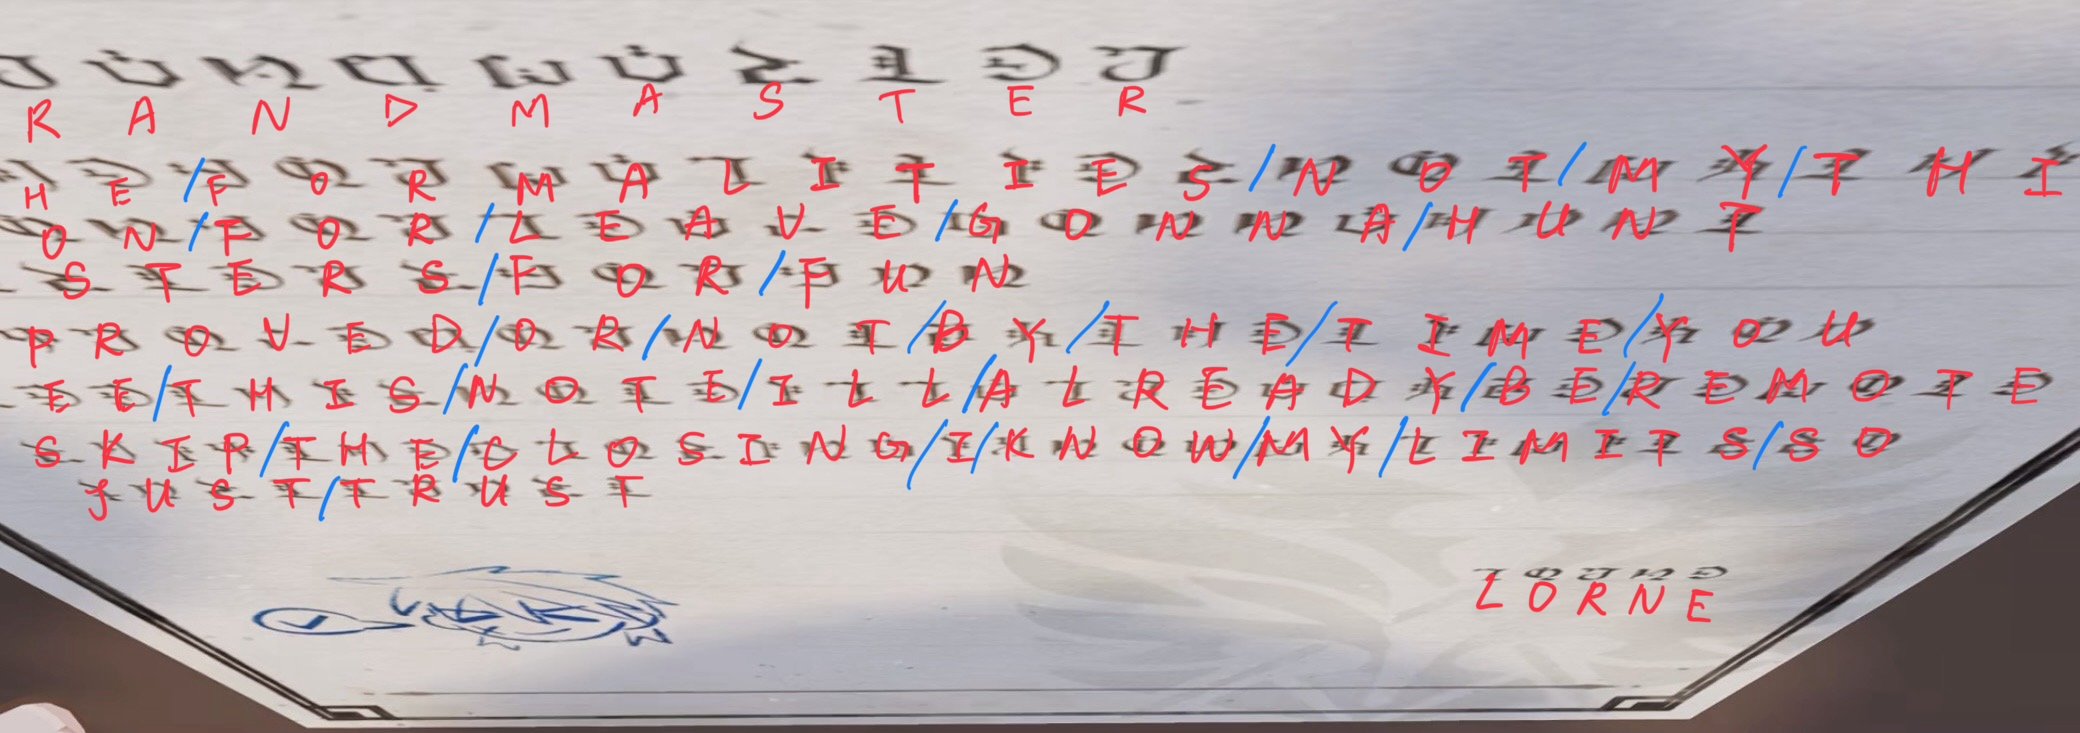 RANDMASTER
HE/FORMALITIES/NOT/MY/THI
ON/FOR/LEAVE/GONNA/HUNT
STERS/FOR/FUN
PROVED/OR/NOT/BY/THE/TIME/YOU
EE/THIS/NOTE/ILL/ALREADY/BE/REMOTE
SKIP/THE/CLOSING/I/KNOW/MY/LIMITS/SO
JUST/TRUST
LORNE